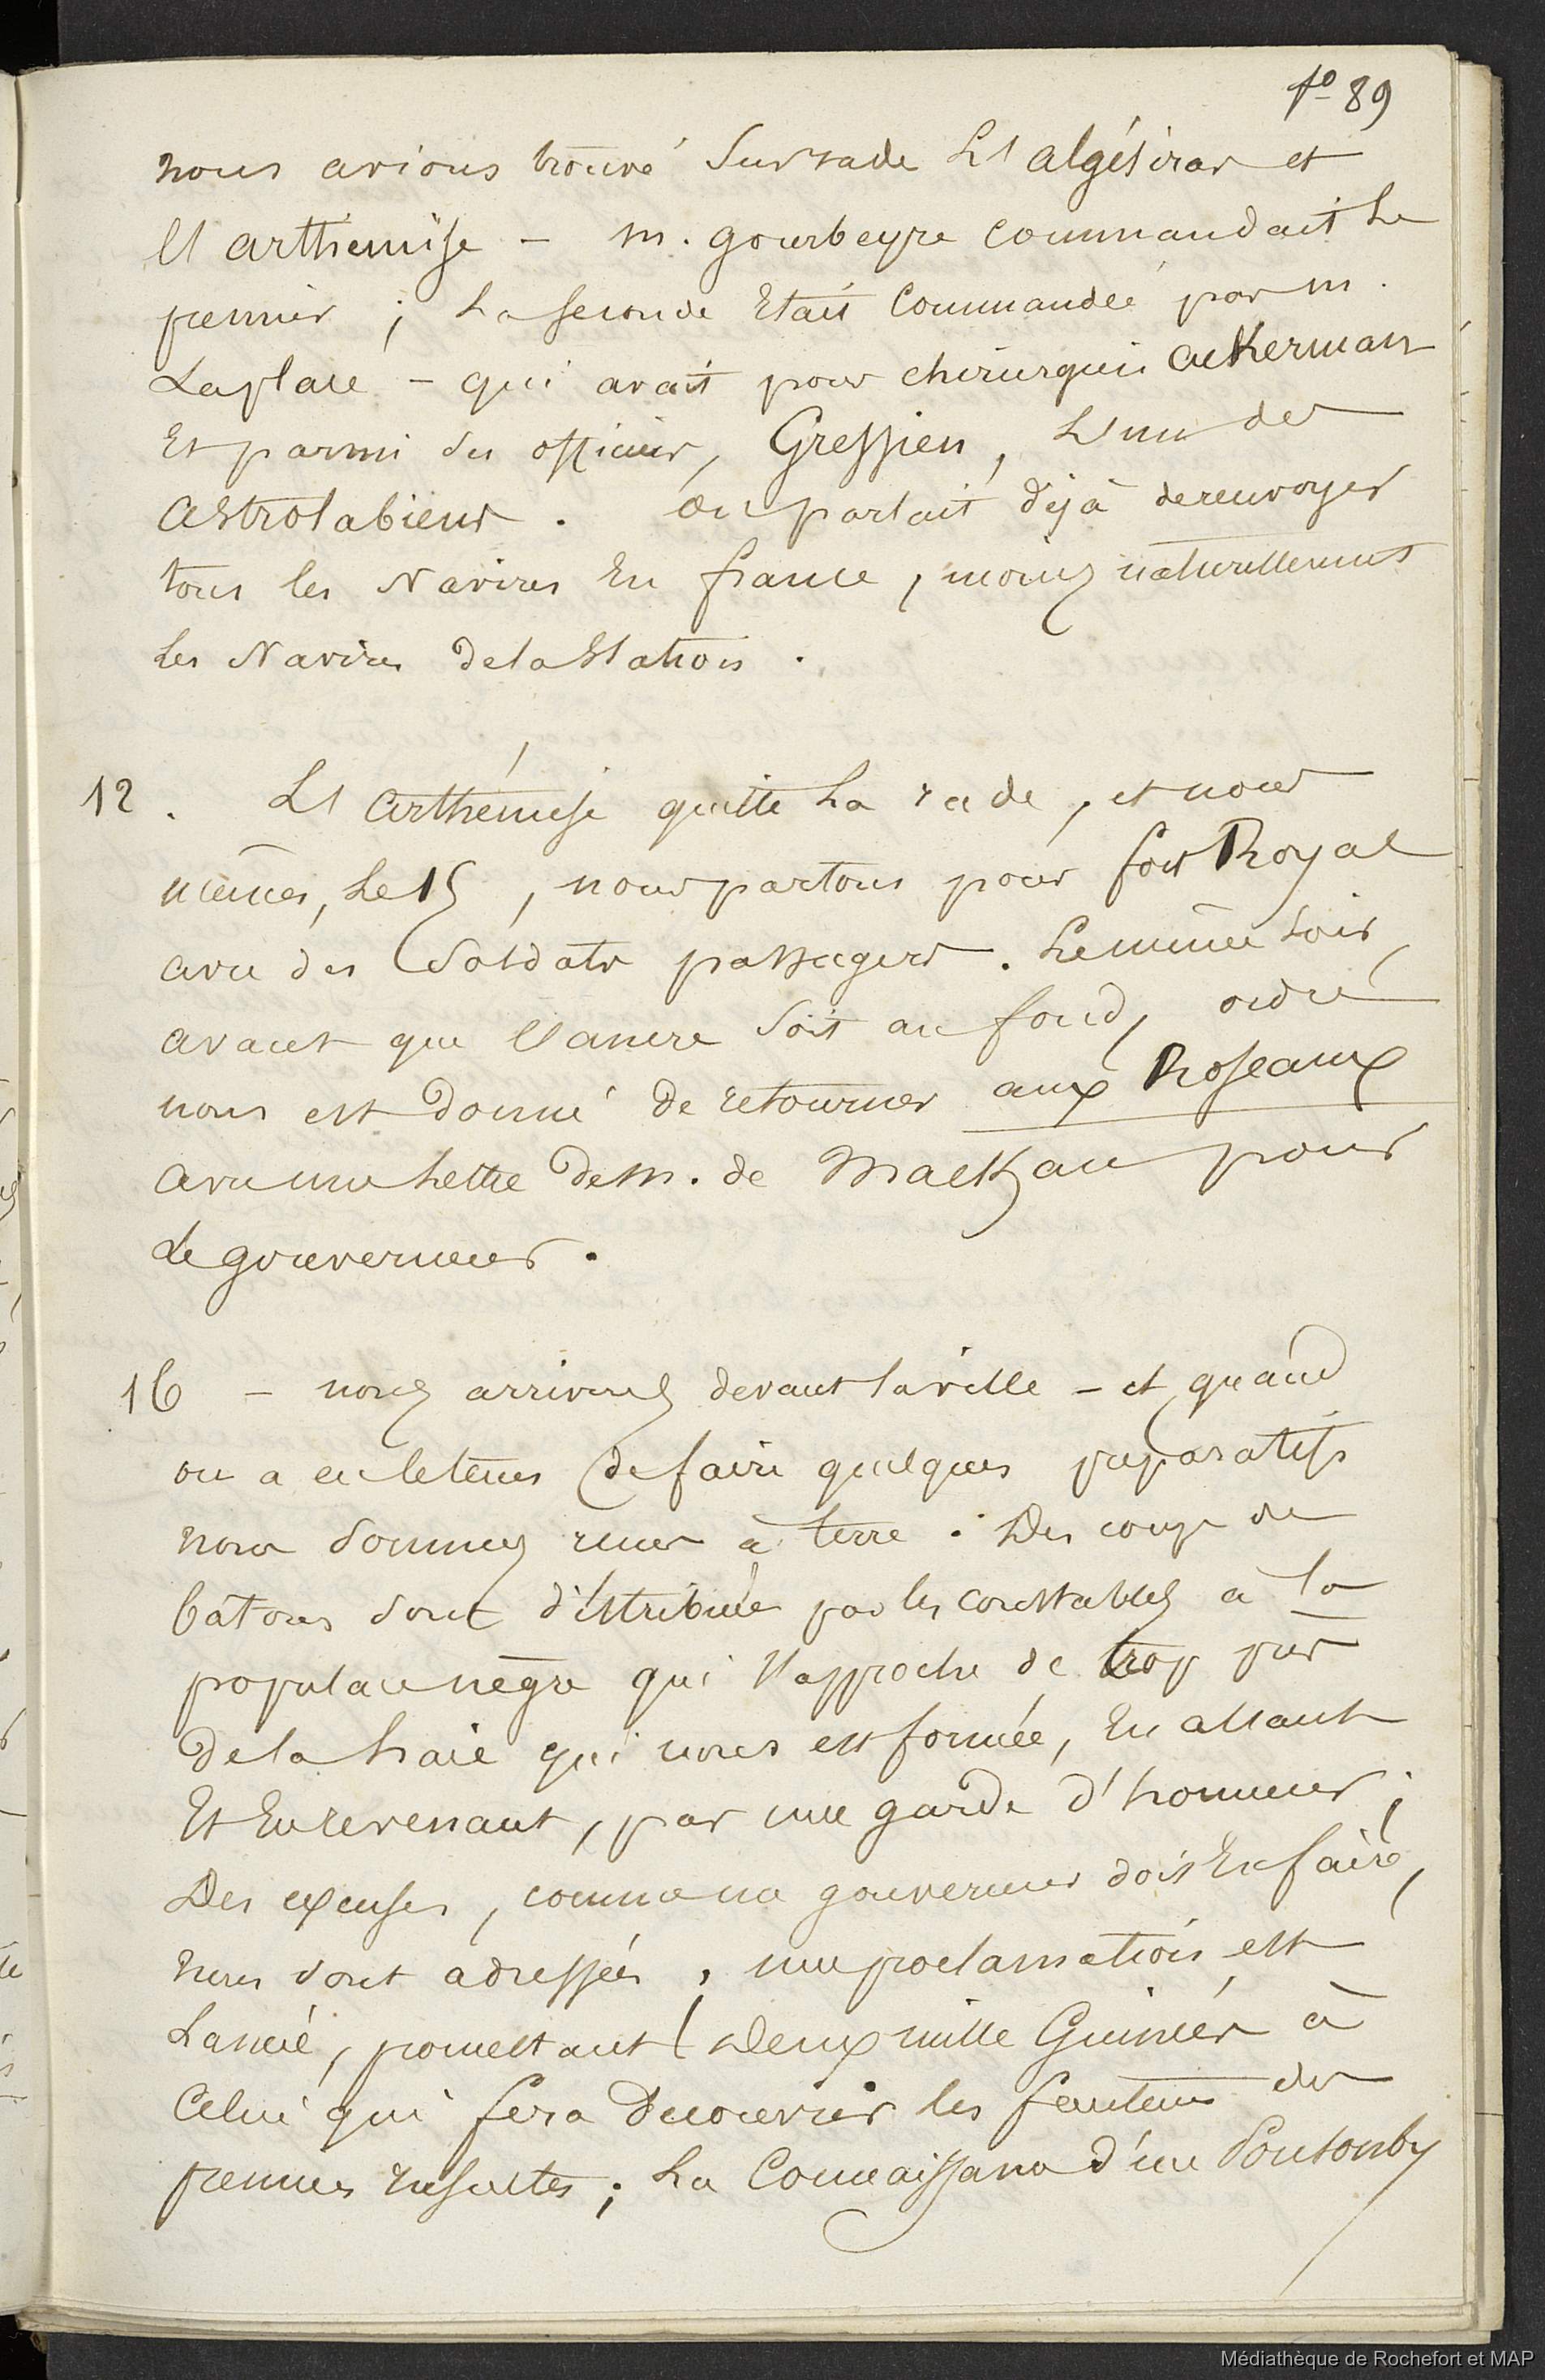 fo 89
nous avions trouvé sur rade L'algésiras et
l'arthemise - m. gourbeyre commandait Le
premier ; La seconde Etait Commandée par m.
Laplace - qui avait pour chirurgien ackerman
Et parmi ses officiers, Gressien, L'un des
astrolabiens. On parlait déjà de renvoyer
tous les Navires En france, moins naturellement
Les Navires de la Station.
12. L'arthémise quitte La rade, et nous
mêmes, Le 15, nous partons pour fort Royal
avec des Soldats passagers. Le même soir,
avant que l'ancre soit au fond, ordre
nous est donné de retourner aux Roseaux
avec une Lettre de m. de Mackau pour
Le gouverneur.
16 - nous arrivons devant la ville - et quand
on a eu le tems de faire quelques préparatifs
nous sommes reçus à terre. Des coups de
bâtons sont distribués par les constables à la
populace nègre qui s'approche de trop près
de la haie qui nous est formée, En allant
Et En revenant, par une garde d'honneur ;
Des excuses, comme un gouverneur doit En faire,
nous sont adressées, une proclamation est
Lancée, promettant Deux mille Guinées à
Celui qui fera Decouvrir les fauteurs des
premières insultes ; La Connaissance d'un Ponsonby
Médiathèque de Rochefort et MAP